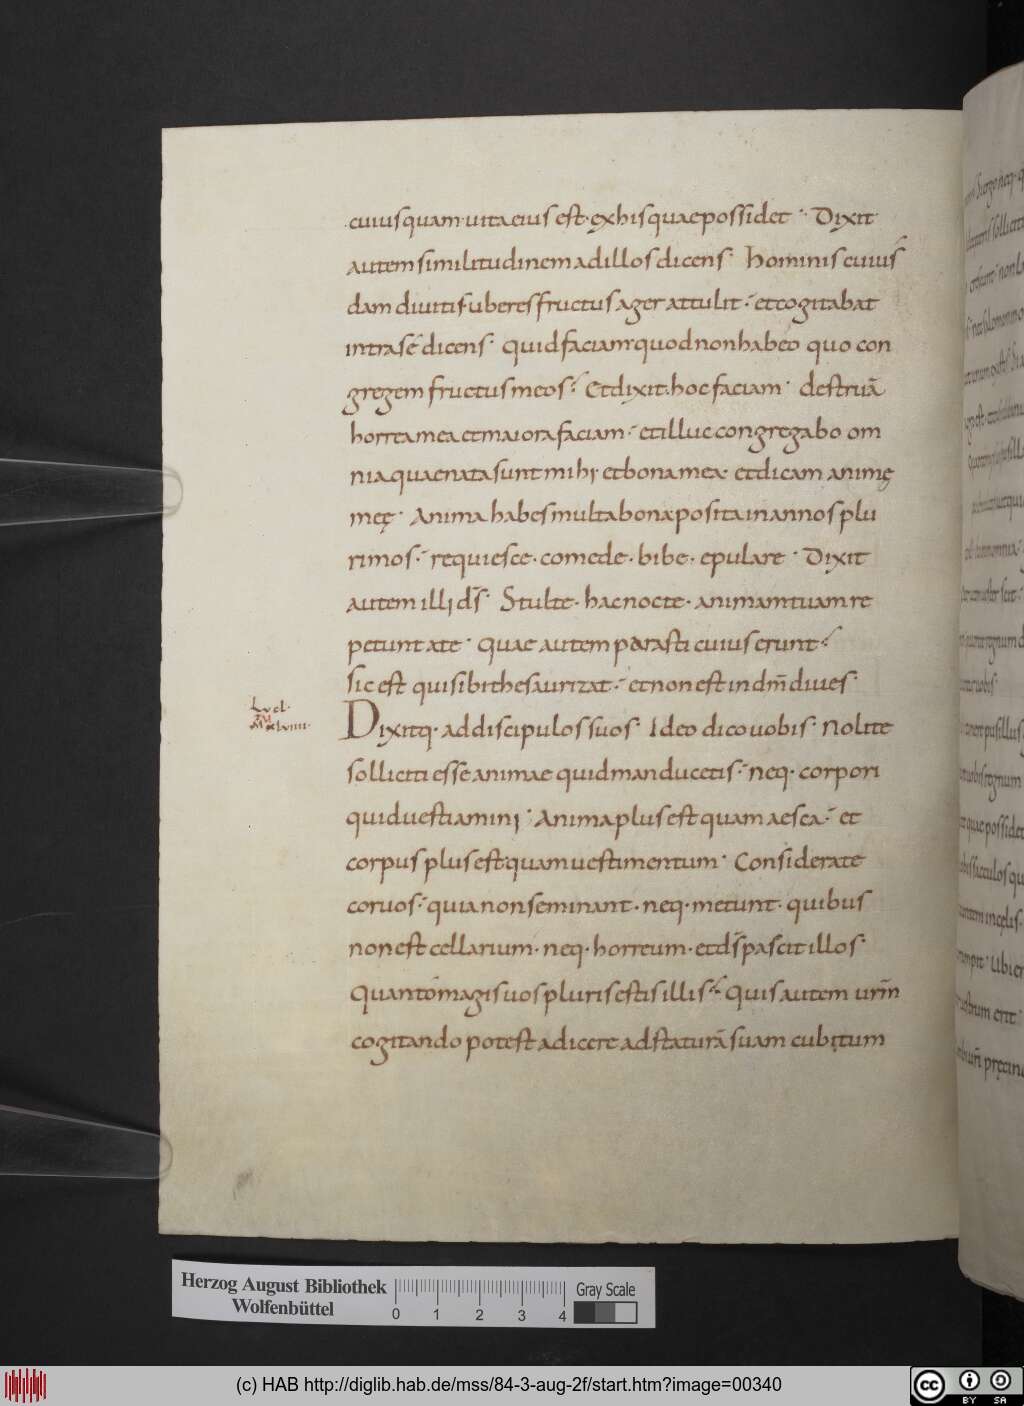 cuiusquam uita eius est · ex his quae possidet · Dixit
autem similitudinem ad illos dicens · hominis cuius
dam diuitis uberes fructus ager attulit · et cogitabat
intra se dicens · quid faciam quod non habeo quo con
gregem fructus meos · Et dixit · hoc faciam · destruā
horrea mea et maiora faciam · et illuc congregabo om
nia quae nata sunt mihi et bona mea · et dicam animę
meę · Anima habes multa bona posita in annos plu
rimos · requiesce · comede · bibe · epulare · Dixit
autem illi d̄s · Stulte · hac nocte · animam tuam re
petunt a te · quae autem parasti cuius erunt ·
sic est qui sibi thesaurizat · et non est in dm̄ diues ·
Luc l ·
Dixitq · ad discipulos suos · Ideo dico uobis · Nolite
solliciti esse animae quid manducetis · neq · corpori
quid uestiamini · Anima plus est quam aesca · et
corpus plus est quam uestimentum · Considerate
coruos · quia non seminant · neq · metunt · quibus
non est cellarium · neq · horreum · et d̄s pascit illos ·
Quanto magis uos pluris estis illis · Quis autem urm̄
cogitando potest adicere ad staturā suam cubitum
Herzog August Bibliothek
Wolfenbüttel
0 1 2 3 4
Gray Scale
(c) HAB http://diglib.hab.de/mss/84-3-aug-2f/start.htm?image=00340
cc BY SA